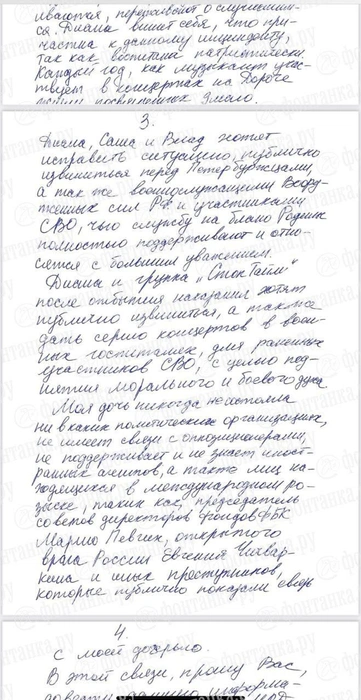 иваются, переживают о случившем-
ся. Диана винит себя, что при-
частна к данному инциденту,
так как воспитана патриотически.
Каждый год, как музыкант, учас-
твует в концертах на Дороге
жизни посвященных
3.
Диана, Саша и Влад хотят
исправить ситуацию, публично
извиниться перед Петербуржцами,
а так же военнослужащими Воору-
женных сил РФ и участниками
СВО, чью службу на благо Родины
полностью поддерживают и отно-
сятся с большим уважением.
Диана и группа „Стоптайм"
после отбытия наказания хотят
публично извиниться, а также
дать серию концертов в воен-
ных госпиталях, для раненых
участников СВО, с целью под-
нятия морального и боевого духа
Моя дочь никогда не состояла
ни в каких политических организациях,
не имеет связи с оппозиционерами,
не поддерживает и не знает иност-
ранных агентов, а также лиц на-
ходящихся в международном ро-
зыске, таких как, председатель
советов директоров фондов ФБК
Мария Певчих, открытого
врага России Евгений Чичвар-
кина и иных преступников,
которые публично показали связь
4.
с моей дочерью.
В этой связи, прошу Вас,
фонтанка.ру